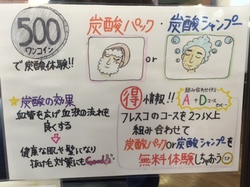 500
ワンコイン
で炭酸体験!!
炭酸パック・炭酸シャンプー
or
★炭酸の効果
血管を広げ血液の流れを
良くする
健康な肌や髪になり
抜け毛対策にもGood!!
得情報!!
組み合わせ例
A+Dコース
フレスコのコースを2つ以上
組み合わせて
炭酸パックor炭酸シャンプーを
無料体験しちゃおう